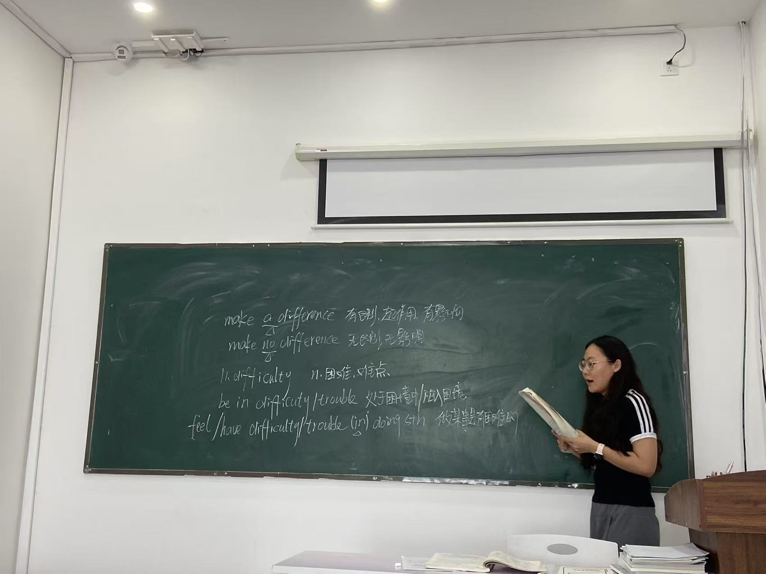 make a difference 有区别,起作用,有影响
make no difference 无区别,无影响
11. difficulty n.困难,难点
be in difficulty/trouble 处于困境中/陷入困境
feel/have difficulty/trouble (in) doing sth 做某事是有困难的